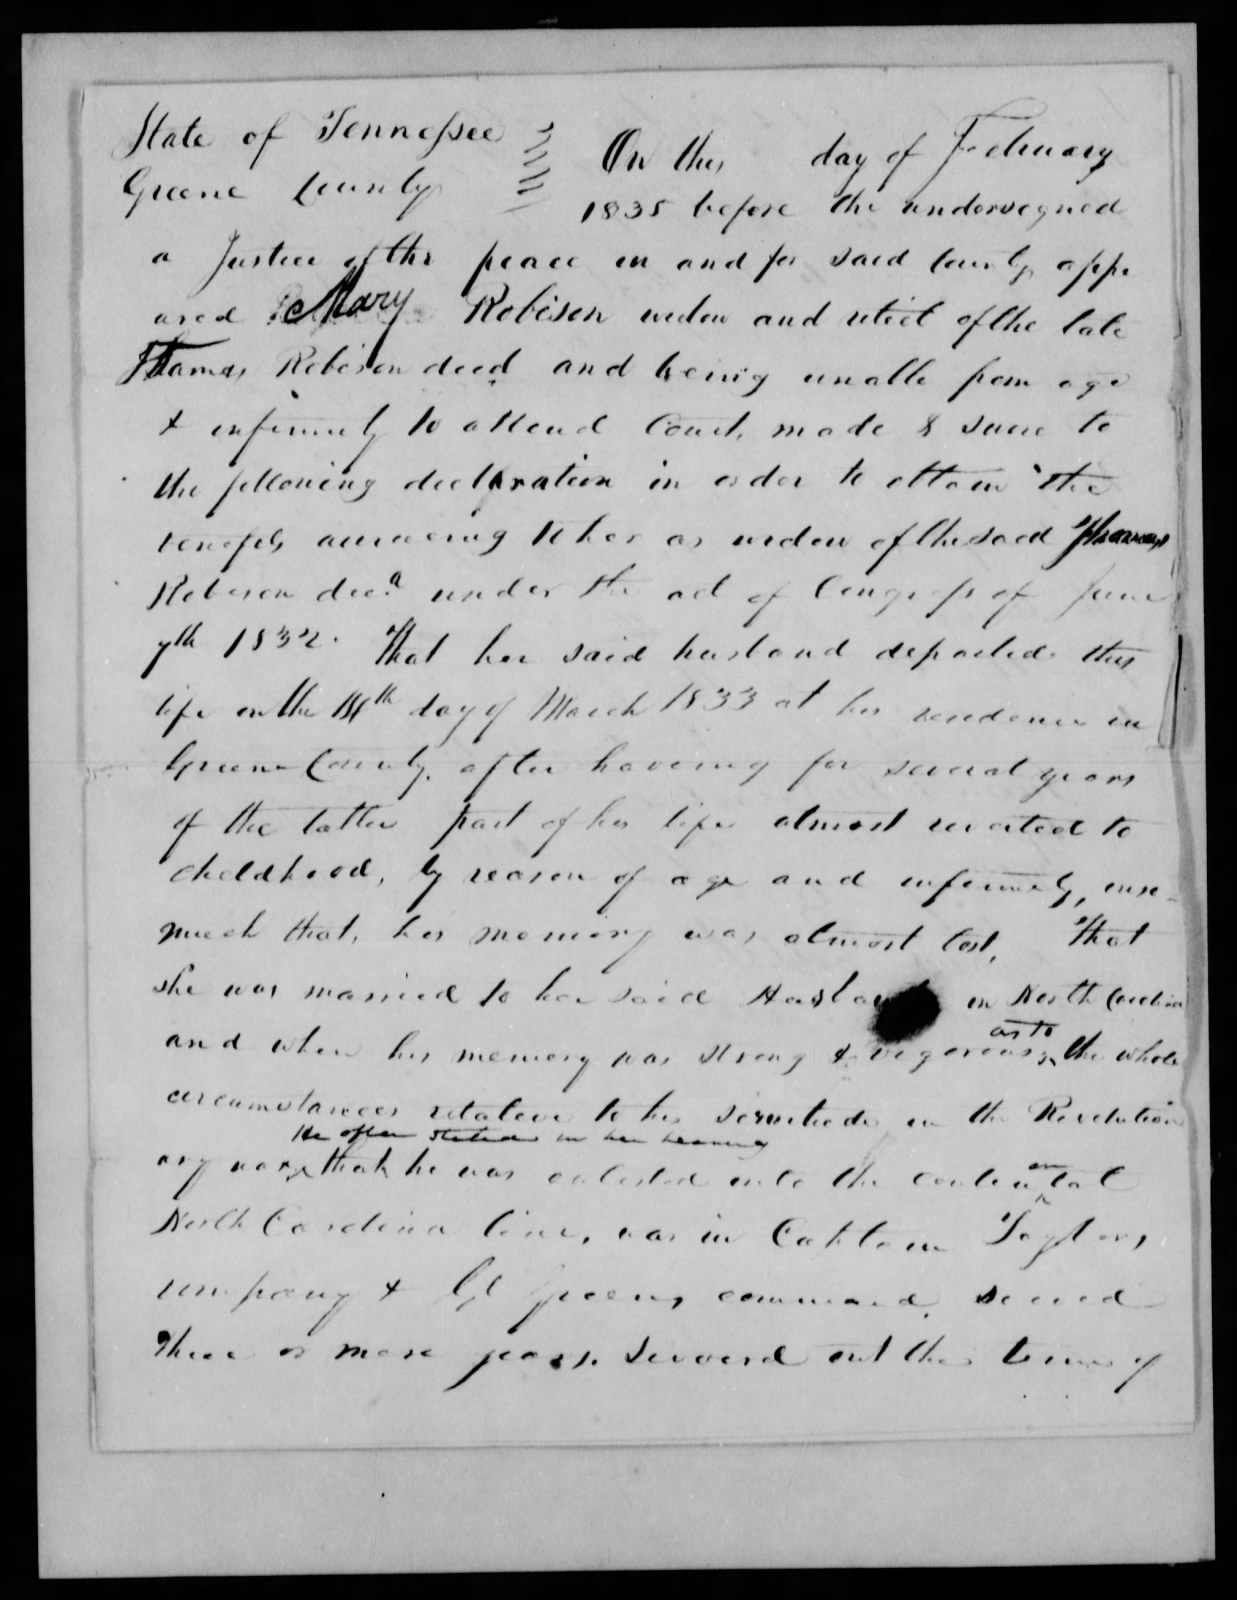 State of Tennessee
Greene County
On this day of February
1835 before the undersegned
a Justice of the peace in and for said County appe
ared Mary Robison widow and relict of the late
Thomas Robison decd and being unable from age
& infirmity to attend Court, made & swore to
the following declaration in order to obtain the
benefits accrueing to her as widow of the said Thomas
Robison decd under the act of Congress of June
7th 1832. That her said husband departed this
life on the 14th day of March 1833 at his residence in
Greene County, after haveing for several years
of the latter part of his life almost reverted to
childhood, by reason of age and infirmity, inso-
much that, his memory was almost lost, That
she was married to her said Husband in North Carolina
and when his memory was strong & vigorous, as to the whole
circumstances relative to his servitude in the Revolution
He often stated in her hearing
ary war, that he was enlisted into the continental
North Carolina line, was in Captain Taylors,
company & Gl Greens, command, served
three or more years. Served out the term of